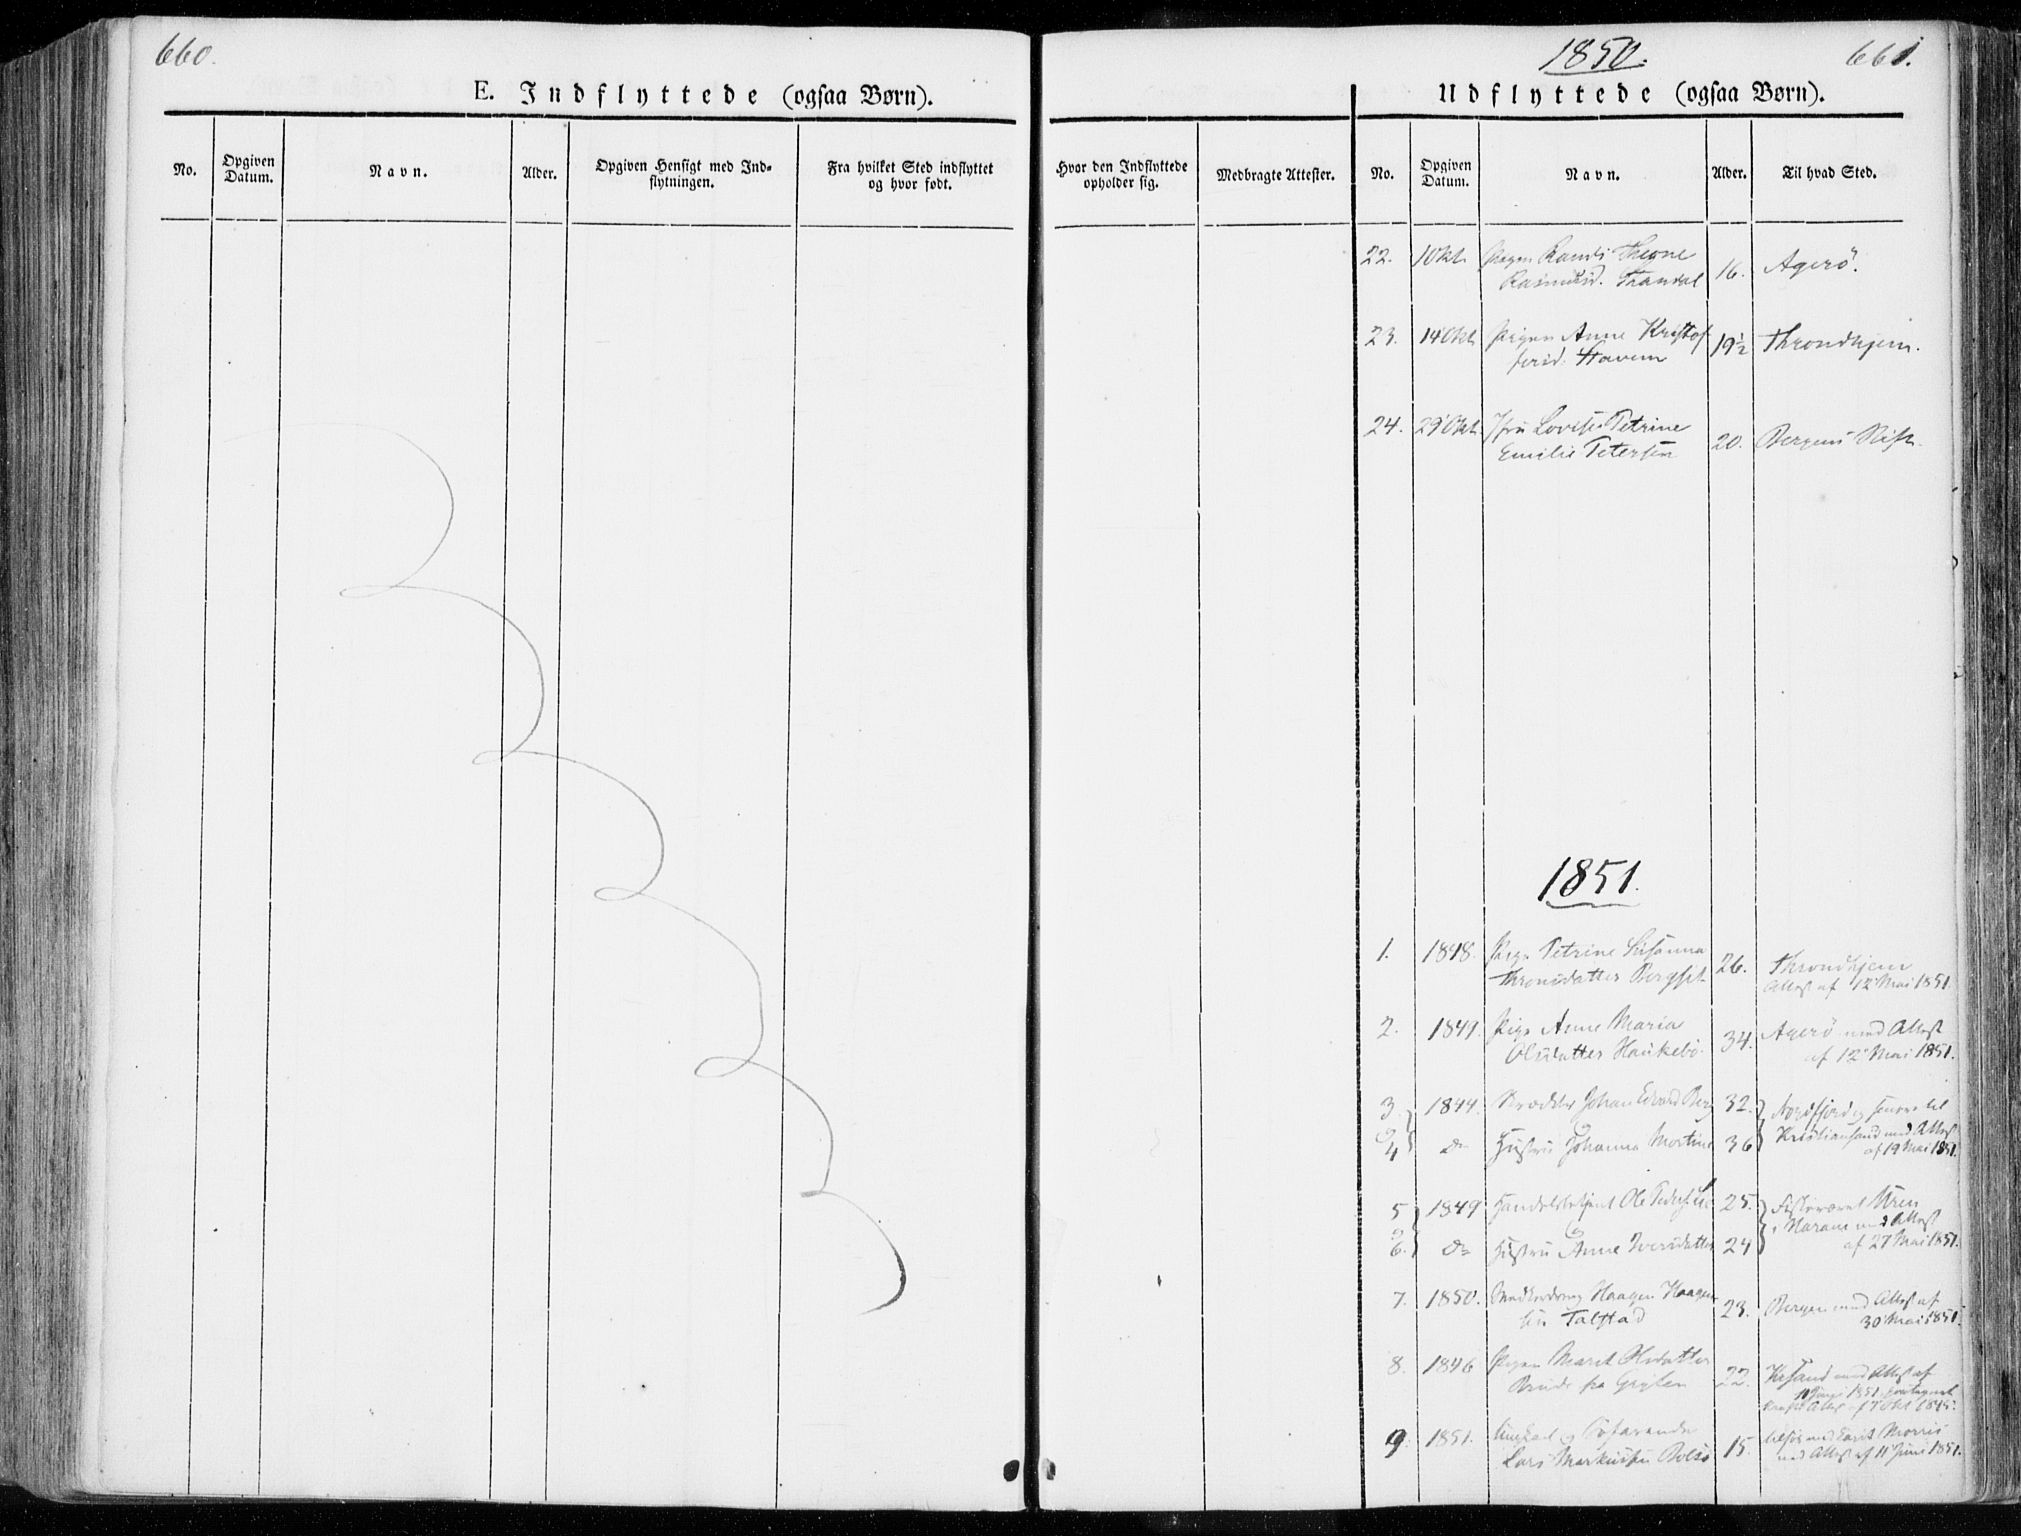 660.
E. Indflyttede (ogsaa Børn).
No.
Opgiven
Datum.
Navn.
Alder.
Opgiven Hensigt med Ind-
flytningen.
Fra hvilket Sted indflyttet
og hvor født.
1850.
661.
Udflyttede (ogsaa Børn).
Hvor den Indflyttede
opholder sig.
Medbragte Attester.
No.
Opgiven
Datum.
Navn.
Alder.
Til hvad Sted.
22. Pigen Randi
Rasmusd. 16. Agerö.
23. 14 Okt. Pigen Anne Kristof
fersd. 19½ Throndhjem.
24. 29 Okt. Jfru Lovise Petrine
Emilie Petersen 20. Bergens Stift.
1851.
1. 1848. Pige Petrine Susanna
Thronsdatter 26. Throndhjem
Attest af 12 Mai 1851.
2. 1849. Pige Anne Maria
Olsdatter Haukebö. 34. Agerö med Attest
af 12 Mai 1851.
3. 1844. Skrædder Johan Edvard Berg 32. Nordfjord og senere til
og
4 do Hustru Johanna Martine 36 Kristiansand med Attest
af 19 Mai 1851.
5 1849 Handelsbetjent Ole 25. Fiskeværet
i Haram med Attest
6. do Hustru Anne Iversdatter 24 af 27 Mai 1851.
7. 1850. Haagen Haagen-
sen Talstad 23. Bergen med Attest af
30 Mai 1851.
8. 1846 Pigen Marit Olsdatter
fra Grytten 22. Krsand med Attest af
1851
1845.
9. 1851. Ungkarl og Söfarende
Lars Markussen Bolsö 15. Morris
med Attest af 11 Juni 1851.